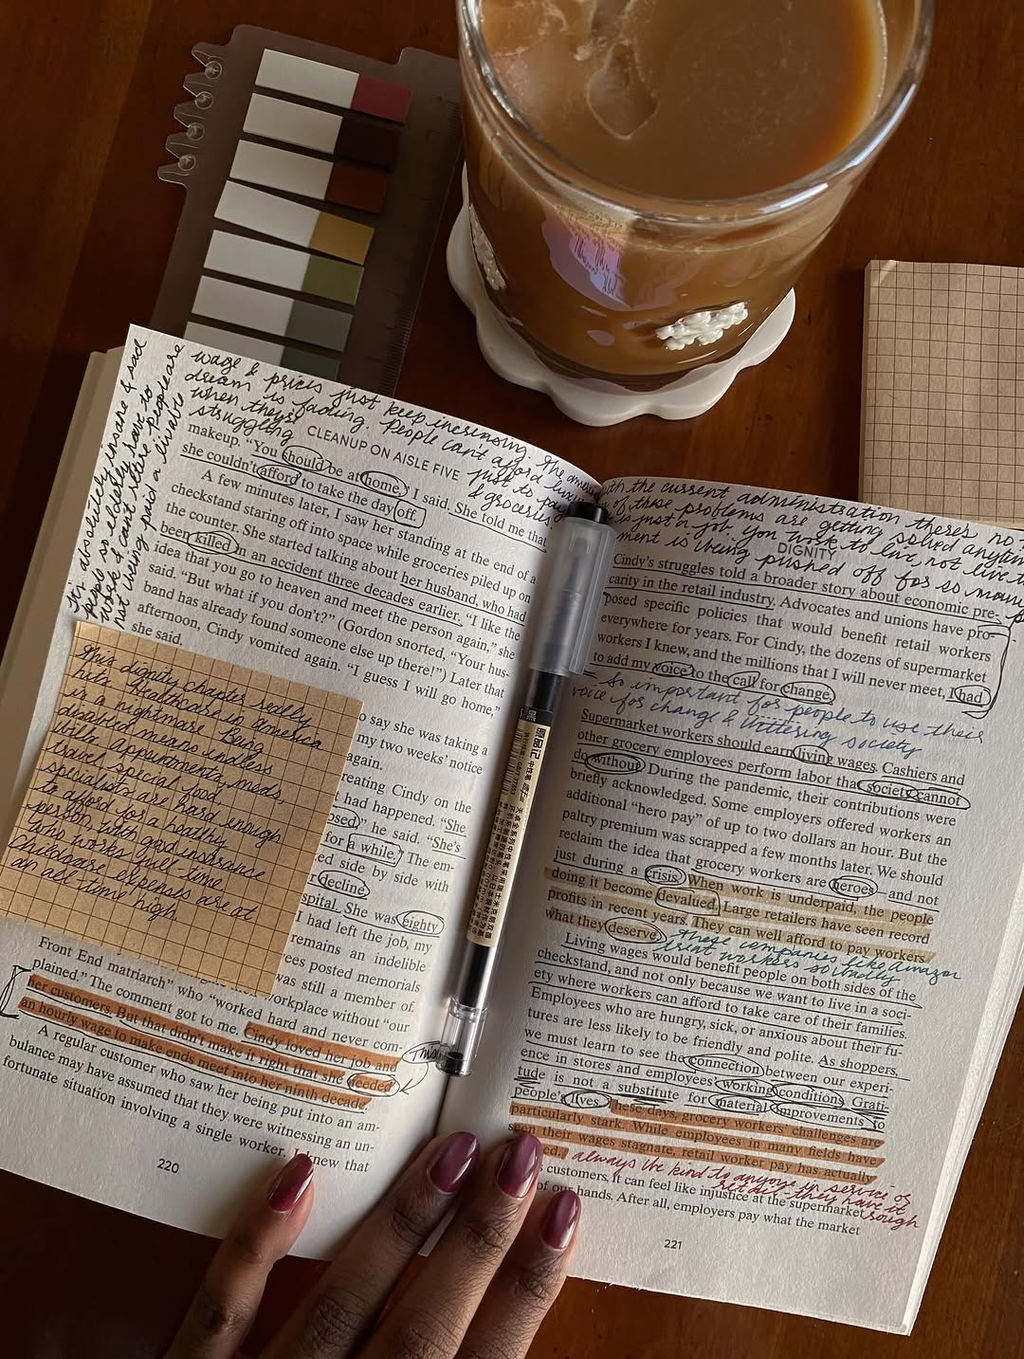 wage & prices just keep increasing. The american
dream is fading. People can't afford
when they're just to pay
struggling & groceries
I'm absolutely insane & sad
to work & can't retire. people are
not being paid a livable
CLEANUP ON AISLE FIVE
makeup. "You should be at home," I said. She told me that
she couldn't afford to take the day off.
A few minutes later, I saw her standing at the end of a
checkstand staring off into space while groceries piled up on
the counter. She started talking about her husband, who had
been killed in an accident three decades earlier. "I like the
idea that you go to heaven and meet the person again," she
said. "But what if you don't?" (Gordon snorted, "Your hus-
band has already found someone else up there!") Later that
afternoon, Cindy vomited again. "I guess I will go home,"
she said.
This dignity chapter really
hits. Healthcare in america
is a nightmare. Being
disabled means endless
appointments, meds,
travel, special food,
specialists are hard enough
to afford for a healthy
person with good insurance
who works full-time.
Childcare expenses are at
an all time high
o say she was taking a
my two weeks' notice
again.
reating Cindy on the
had happened. "She
osed," he said. "She's
for a while." The em-
ed side by side with
r decline.
spital. She was eighty
I had left the job, my
remains an indelible
ees posted memorials
was still a member of
orkplace without "our
Front End matriarch" who "worked hard and never com-
plained." The comment got to me. Cindy loved her job and
her customers. But that didn't make it right that she needed
an hourly wage to make ends meet into her ninth decade.
A regular customer who saw her being put into an am-
bulance may have assumed that they were witnessing an un-
fortunate situation involving a single worker. I knew that
220
with the current administration there's no
of these problems are getting solved anytime
is just a job. You work to live, not live to
ment is being pushed off for so many
DIGNITY
Cindy's struggles told a broader story about economic pre-
carity in the retail industry. Advocates and unions have pro-
posed specific policies that would benefit retail workers
everywhere for years. For Cindy, the dozens of supermarket
workers I knew, and the millions that I will never meet, I had
to add my voice to the call for change.
- so important for people to use their
voice for change & bettering society
Supermarket workers should earn living wages. Cashiers and
other grocery employees perform labor that society cannot
do without. During the pandemic, their contributions were
briefly acknowledged. Some employers offered workers an
additional "hero pay" of up to two dollars an hour. But the
paltry premium was scrapped a few months later. We should
reclaim the idea that grocery workers are heroes—and not
just during a crisis. When work is underpaid, the people
doing it become devalued. Large retailers have seen record
profits in recent years. They can well afford to pay workers
what they deserve.
these companies like amazon
treat workers so cruelly
Living wages would benefit people on both sides of the
checkstand, and not only because we want to live in a soci-
ety where workers can afford to take care of their families.
Employees who are hungry, sick, or anxious about their fu-
tures are less likely to be friendly and polite. As shoppers,
we must learn to see the connection between our experi-
ence in stores and employees' working conditions. Grati-
tude is not a substitute for material improvements to
people's lives.
These days, grocery workers' challenges are
particularly stark. While employees in many fields have
seen their wages stagnate, retail worker pay has actually
always be kind to anyone in service or
retail - they have it
rough
customers, it can feel like injustice at the supermarket
of our hands. After all, employers pay what the market
221